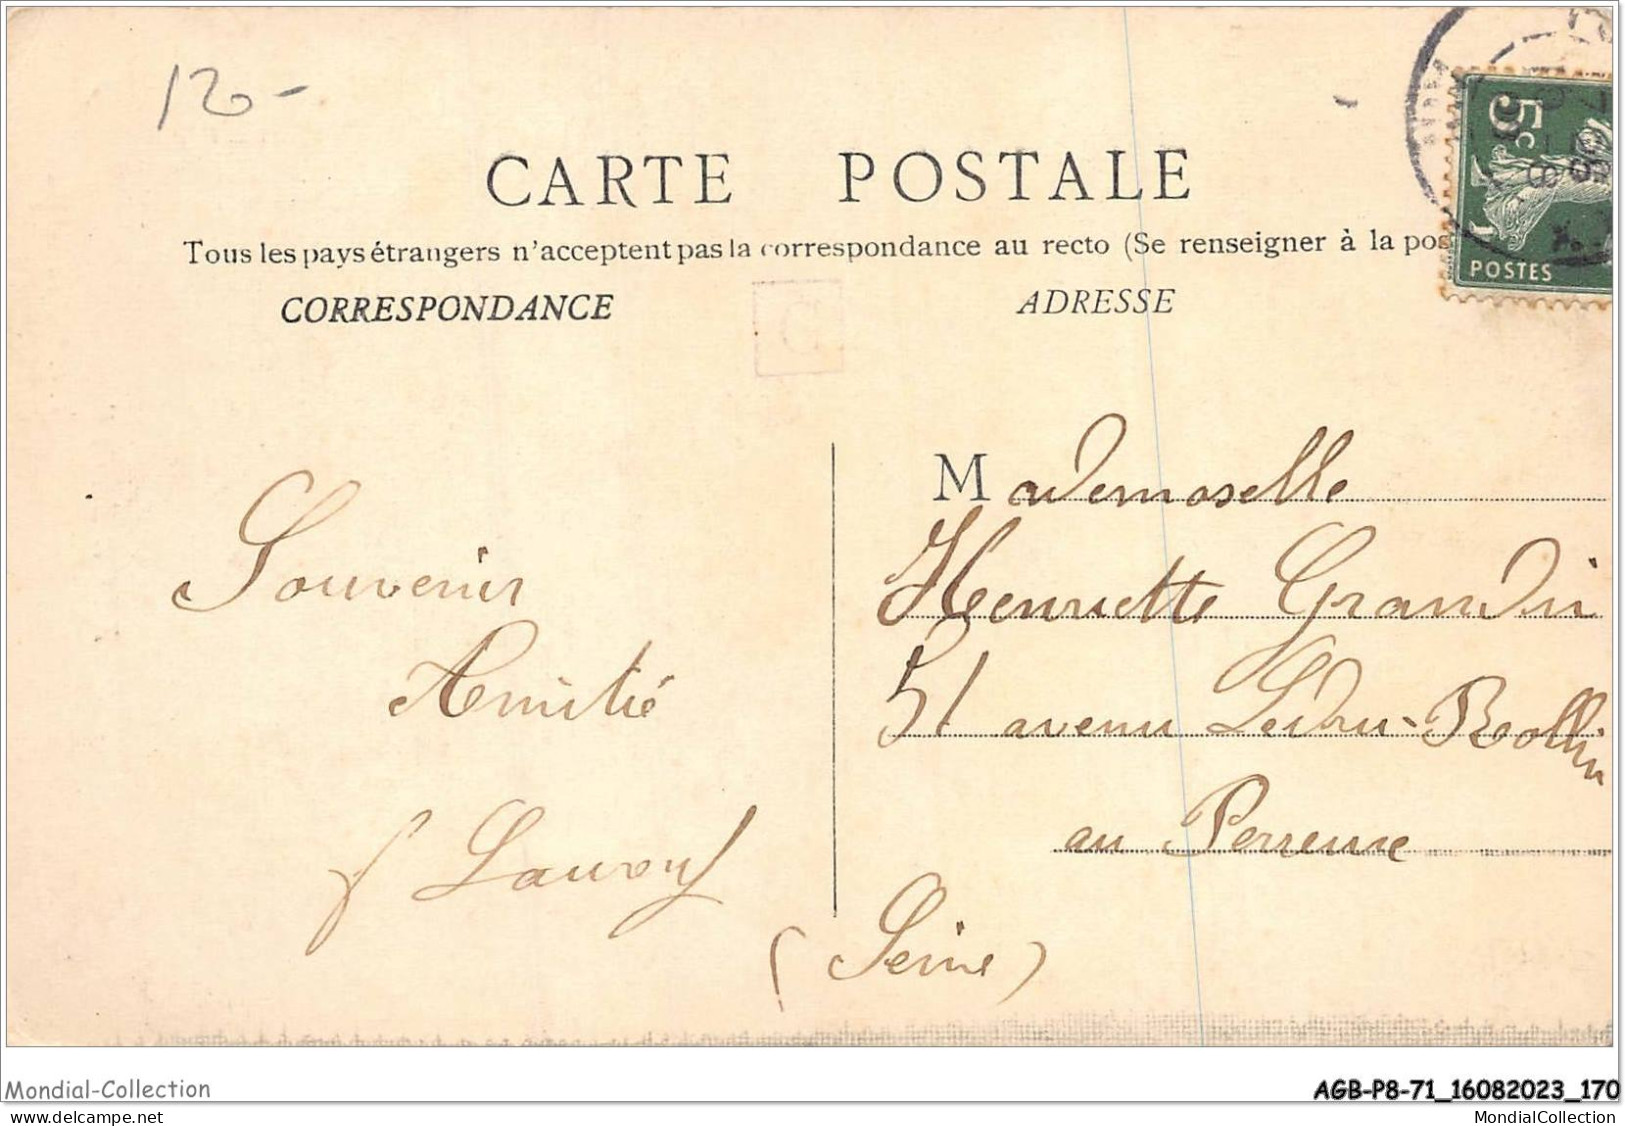 120-
CARTE POSTALE
Tous les pays étrangers n'acceptent pas la correspondance au recto (Se renseigner à la pos
CORRESPONDANCE
ADRESSE
5c
POSTES
Souvenir
Amitié
Mademoselle
Henriette Grandin
51 avenu Ledru-Rollin
au Perreuse
(Seine)
Mondial-Collection
AGB-P8-71_16082023_170
www.delcampe.net
MondialCollection